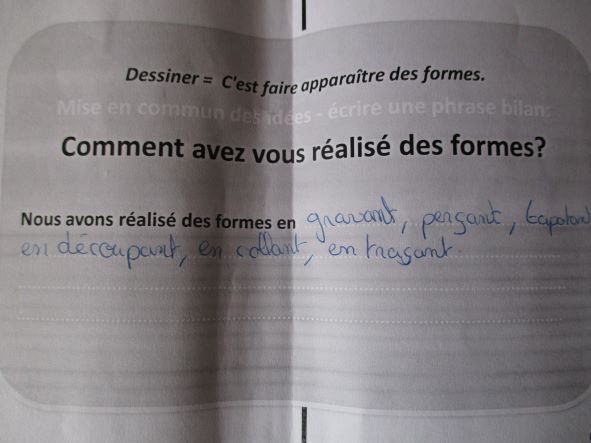 Dessiner = C'est faire apparaître des formes.
Mise en commun des idées - écrire une phrase bilan:
Comment avez vous réalisé des formes?
Nous avons réalisé des formes en gravant, perçant, tapotant
en découpant, en collant, en traçant.